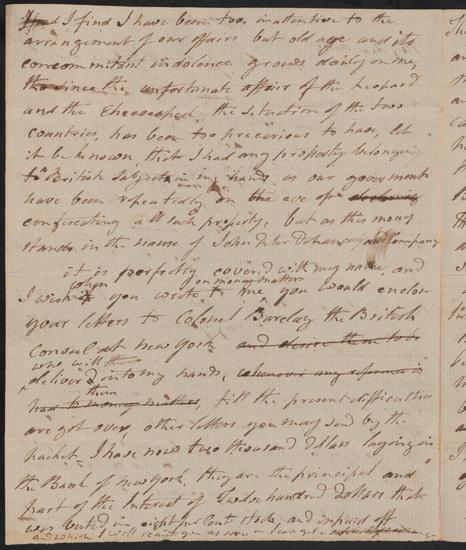 I find I have been too inattensive to the
arrangement of our affairs but old age and its
concommitant indolence grows daily on me,
the since the unfortunate affair of the Leopard
and the Chesesapek, the situation of the two
countries, has been too precarious to have, let
it be known, that I had any property belonging
to British subjects in my hands as our government
have been repeatedly on the eve of declaring
confiscating all such property, but as this mony
stands in the name of John Delancey and Company
it is perfectly covered with my name, and
I wish when you write to me on money matters you would enclose
your letters to Colonel Barclay the British
Consul at new York and desire them to be
who will
deliver them into my hands, whenever any reference is
had to money matters, till the present difficulties
are got over, other letters you may send by the
packet. I have now two thousand dollars laying in
the Bank of new York, they are the principal and
part of the Interest of hundred dollars that
was vested in eight per cent stock, and
and which I will remit you as soon as I can get a